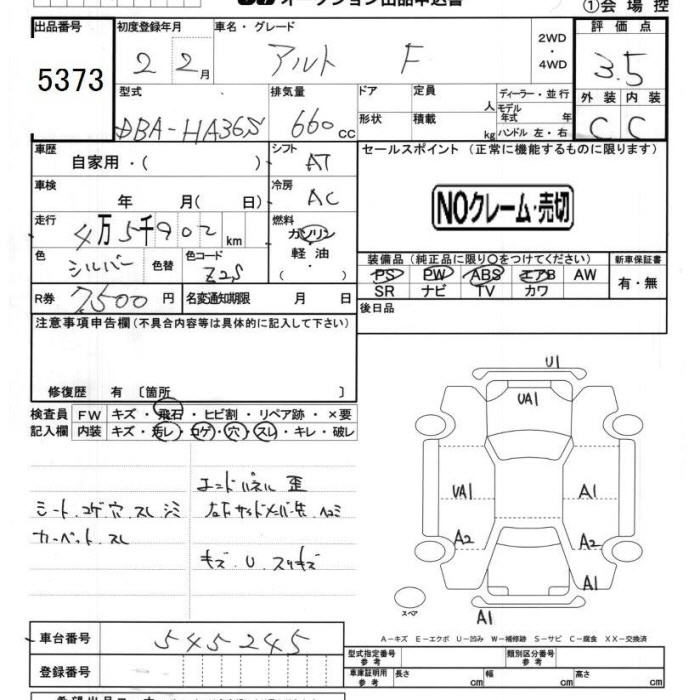 オークション出品申込書
①会場控
出品番号 初度登録年月 車名・グレード 2WD・4WD 評価点
5373 2 2月 アルト F 3.5
型式 排気量 ドア 定員 人 ディーラー・並行 外装 内装
DBA-HA36S 660cc 形状 積載 kg モデル年式 年 ハンドル 左・右 C C
車歴 自家用・( ) シフト AT セールスポイント (正常に機能するものに限ります)
車検 年 月( 日) 冷房 AC
NOクレーム・売切
走行 4万5千902km 燃料 ガソリン 軽油・( )
色 シルバー 色替 色コード Z2S
装備品 (純正品に限り○をつけてください) 新車保証書
PS PW ABS エアB AW 有・無
SR ナビ TV カワ
R券 7,500円 名変通知期限 月 日
後日品
注意事項申告欄 (不具合内容等は具体的に記入して下さい)
修復歴 有 〔箇所 〕
検査員 FW キズ・飛石・ヒビ割・リペア跡・×要
記入欄 内装 キズ・汚レ・コゲ・穴・スレ・キレ・破レ
エンドパネル 歪
シート コゲ 穴 スレ シミ
カーペット スレ
キズ U スリキズ
U1
UA1
UA1
A1
A2
A2
A1
スペア
A1
A-キズ E-エクボ U-凹み W-補修跡 S-サビ C-腐食 XX-交換済
車台番号 545245
型式指定番号 参考 類別区分番号 参考
登録番号
車庫証明用 参考 長さ cm 幅 cm 高さ cm